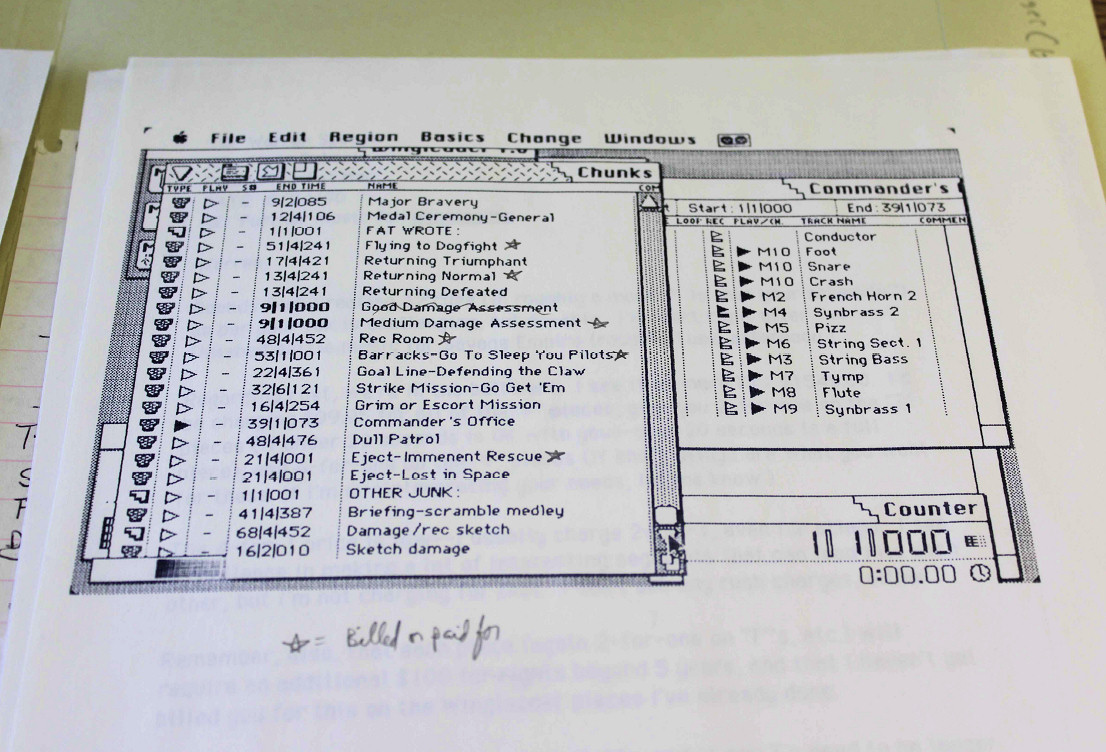 File Edit Region Basics Change Windows
Chunks
TYPE PLAY S# END TIME NAME COM
9|2|085 Major Bravery
12|4|106 Medal Ceremony-General
1|1|001 FAT WROTE:
51|4|241 Flying to Dogfight ☆
17|4|421 Returning Triumphant
13|4|241 Returning Normal ☆
13|4|241 Returning Defeated
9|1|000 Good Damage Assessment
9|1|000 Medium Damage Assessment ☆
48|4|452 Rec Room ☆
53|1|001 Barracks-Go To Sleep You Pilots ☆
22|4|361 Goal Line-Defending the Claw
32|6|121 Strike Mission-Go Get 'Em
16|4|254 Grim or Escort Mission
39|1|073 Commander's Office
48|4|476 Dull Patrol
21|4|001 Eject-Immenent Rescue ☆
21|4|001 Eject-Lost in Space
1|1|001 OTHER JUNK:
41|4|387 Briefing-scramble medley
68|4|452 Damage/rec sketch
16|2|010 Sketch damage
Commander's
Start: 1|1|000 End: 39|1|073
LOOP REC PLAY/CH. TRACK NAME COMMEN
Conductor
M10 Foot
M10 Snare
M10 Crash
M2 French Horn 2
M4 Synbrass 2
M5 Pizz
M6 String Sect. 1
M3 String Bass
M7 Tymp
M8 Flute
M9 Synbrass 1
Counter
1|1|000
0:00.00
☆ = Billed or paid for